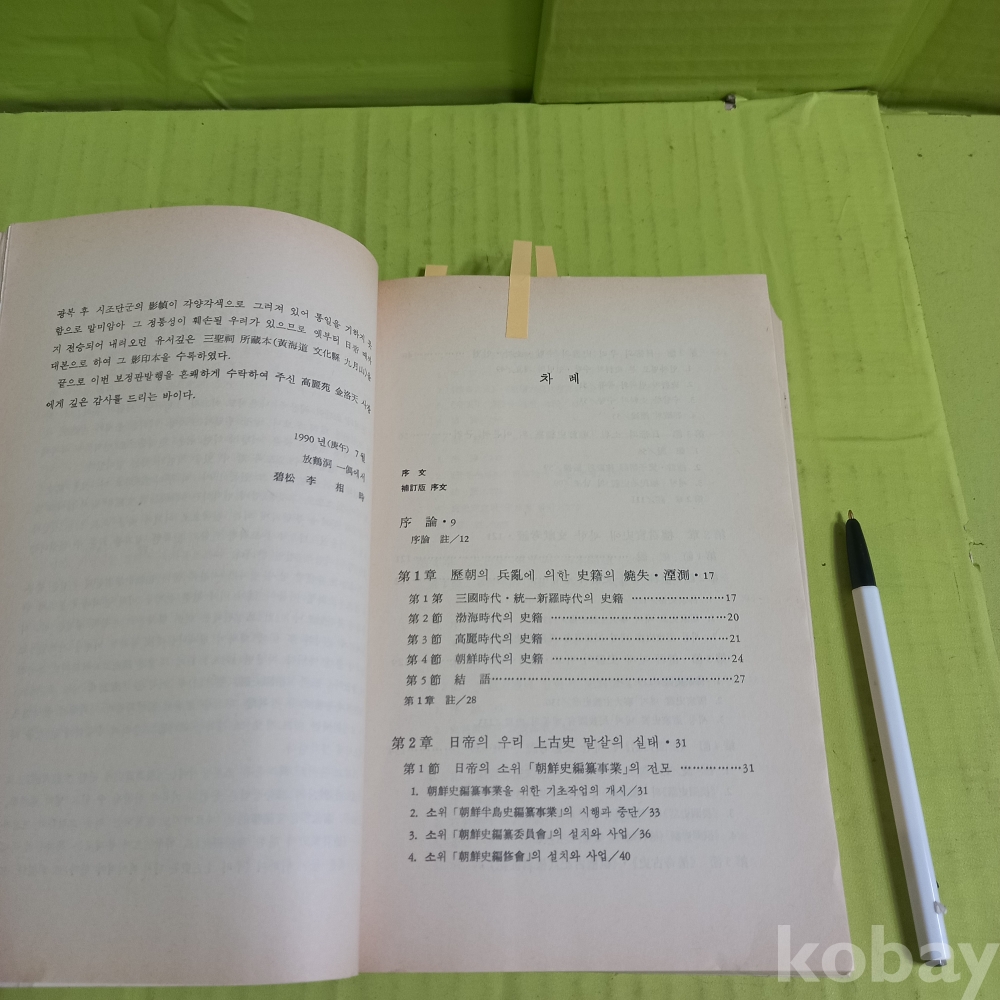 광복 후 시조단군의 影幀이 각양각색으로 그려져 있어 통일을 기하지 못
함으로 말미암아 그 정통성이 훼손될 우려가 있으므로 옛부터 日帝
지 전승되어 내려오던 유서깊은 三聖祠 所藏本(黃海道 文化縣 九月山)을
대본으로 하여 그 影印本을 수록하였다.
끝으로 이번 보정판발행을 흔쾌하게 수락하여 주신 高麗苑 金洛天 사장
에게 깊은 감사를 드리는 바이다.
1990년(庚午) 7월
放鶴洞 一偶에서
碧松 李 相 時
차 례
序 文
補訂版 序文
序 論・9
序論 註/12
第1章 歷朝의 兵亂에 의한 史籍의 燒失・湮測・17
第1第 三國時代・統一新羅時代의 史籍 ……………………17
第2節 渤海時代의 史籍 ………………………………………20
第3節 高麗時代의 史籍 ………………………………………21
第4節 朝鮮時代의 史籍 ………………………………………24
第5節 結 語……………………………………………………27
第1章 註/28
第2章 日帝의 우리 上古史 말살의 실태・31
第1節 日帝의 소위「朝鮮史編纂事業」의 전모 ……………31
1. 朝鮮史編纂事業을 위한 기초작업의 개시/31
2. 소위「朝鮮半島史編纂事業」의 시행과 중단/33
3. 소위「朝鮮史編纂委員會」의 설치와 사업/36
4. 소위「朝鮮史編修會」의 설치와 사업/40
kobay